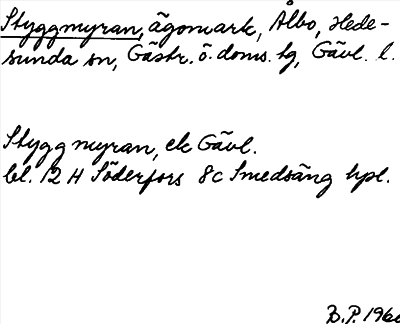 Styggmyran, ägomark, Ålbo, Hede-
sunda sn, Gästr. ö. doms. tg, Gävl. l.
Styggmyran, ek Gävl.
bl. 12 H Söderfors 8c Smedsäng hpl.
B.P. 196